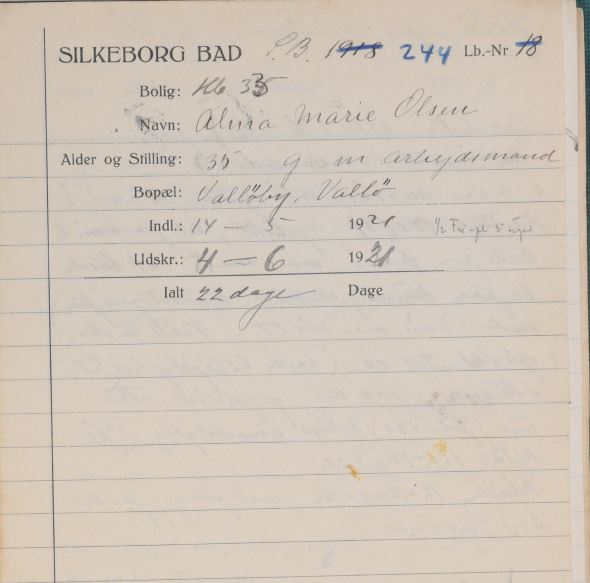 SILKEBORG BAD S.B. 1918 244 Lb.-Nr 18
Bolig: Kb 35
Navn: Alma Marie Olsen
Alder og Stilling: 35 g m arbejdsmand
Bopæl: Vallöby, Vallö
Indl.: 14 — 5 1921 1/2 Fri-pl 5 uger
Udskr.: 4 — 6 1921
Ialt 22 dage Dage